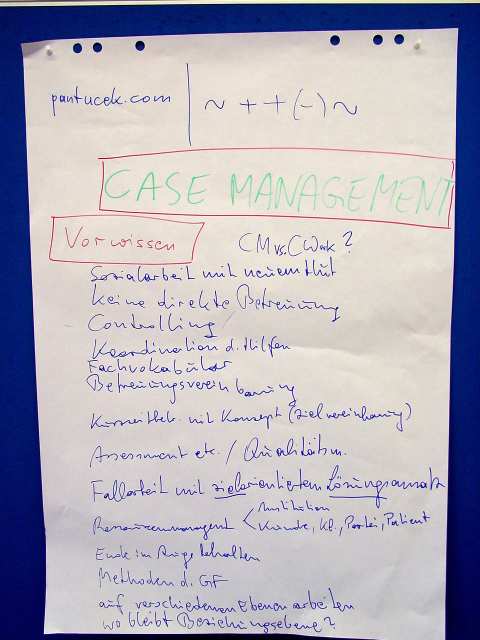 pantucek.com
~ + + (-) ~
CASE MANAGEMENT
Vorwissen
CM vs. CWork?
Sozialarbeit mit neuem Hut
keine direkte Betreuung
Controlling
Koordination d. Hilfen
Fachvokabular
Betreuungsvereinbarung
mit Konzept (Zielvereinbarung)
Assessment etc. / Qualitätsm.
Fallarbeit mit zielorientiertem Lösungsansatz
Ressourcenmanagent < Institution
Kunde, Kl., Partei, Patient
Ende im Auge behalten
Methoden d. GF
auf verschiedenen Ebenen arbeiten
wo bleibt Beziehungsebene?